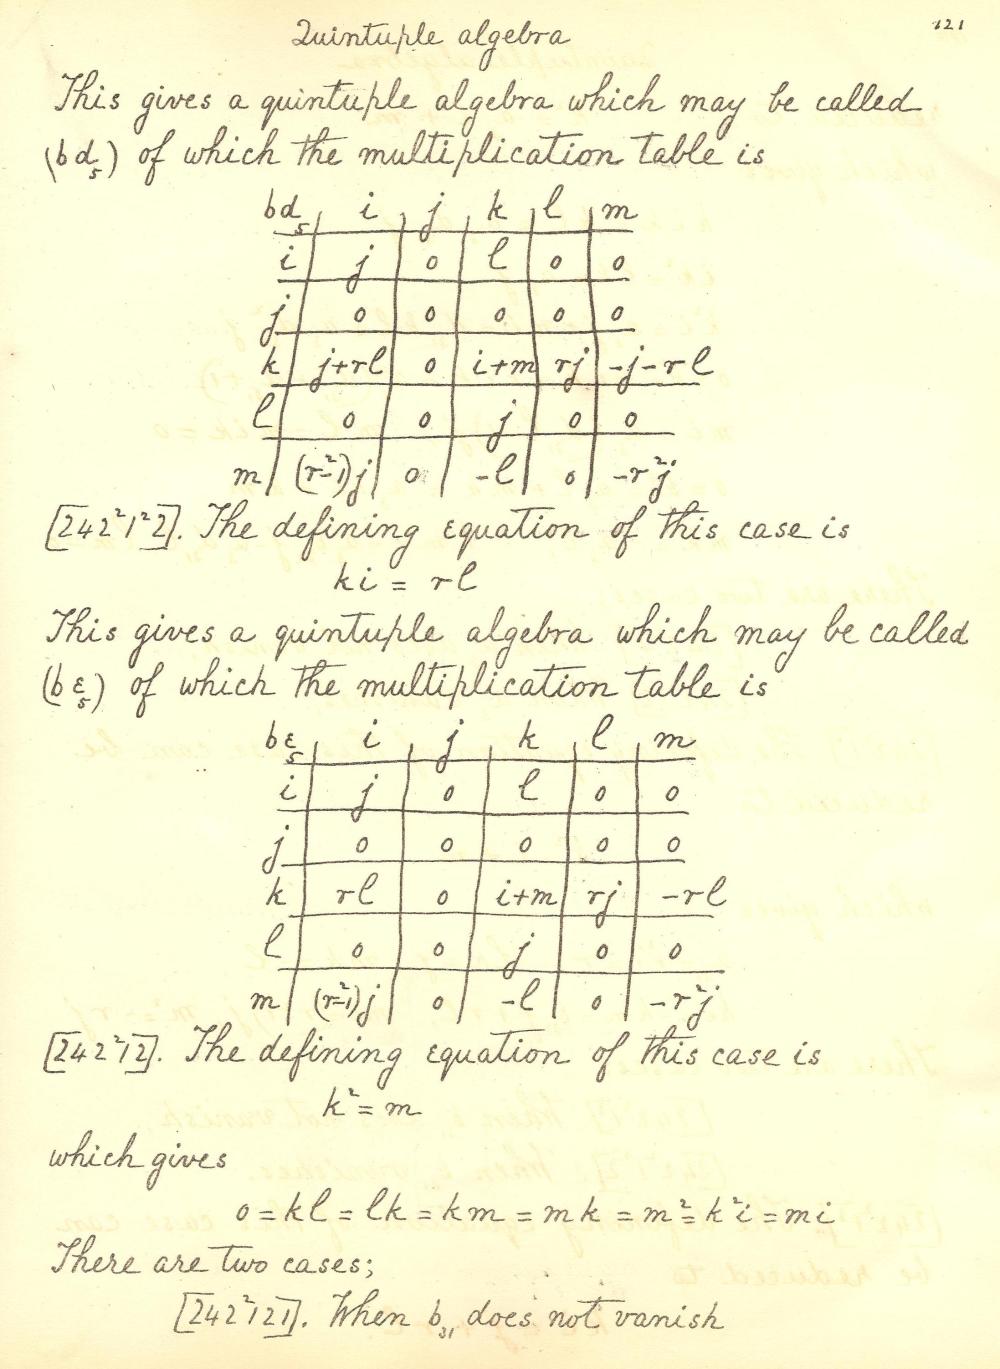 Quintuple algebra 121
This gives a quintuple algebra which may be called
(bd₅) of which the multiplication table is
bd₅ i j k l m
i j 0 l 0 0
j 0 0 0 0 0
k j+rl 0 i+m rj -j-rl
l 0 0 j 0 0
m (r²-1)j 0 -l 0 -r²j
[242²1²2]. The defining equation of this case is
ki = rl
This gives a quintuple algebra which may be called
(bε₅) of which the multiplication table is
bε₅ i j k l m
i j 0 l 0 0
j 0 0 0 0 0
k rl 0 i+m rj -rl
l 0 0 j 0 0
m (r²-1)j 0 -l 0 -r²j
[242²12]. The defining equation of this case is
k² = m
which gives
0 = kl = lk = km = mk = m² = k²i = mi
There are two cases;
[242²121]. When b₃₁ does not vanish